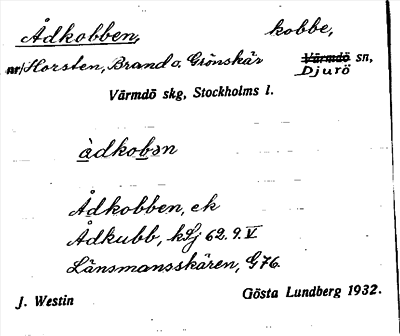 Ådkobben, kobbe,
nr/Horsten, Brand o. Grönskär Värmdö sn,
Djurö
Värmdö skg, Stockholms l.
àdkobən
Ådkobben, ek
Ådkubb, kLj 62. 9. V
Länsmansskären, G76.
J. Westin Gösta Lundberg 1932.